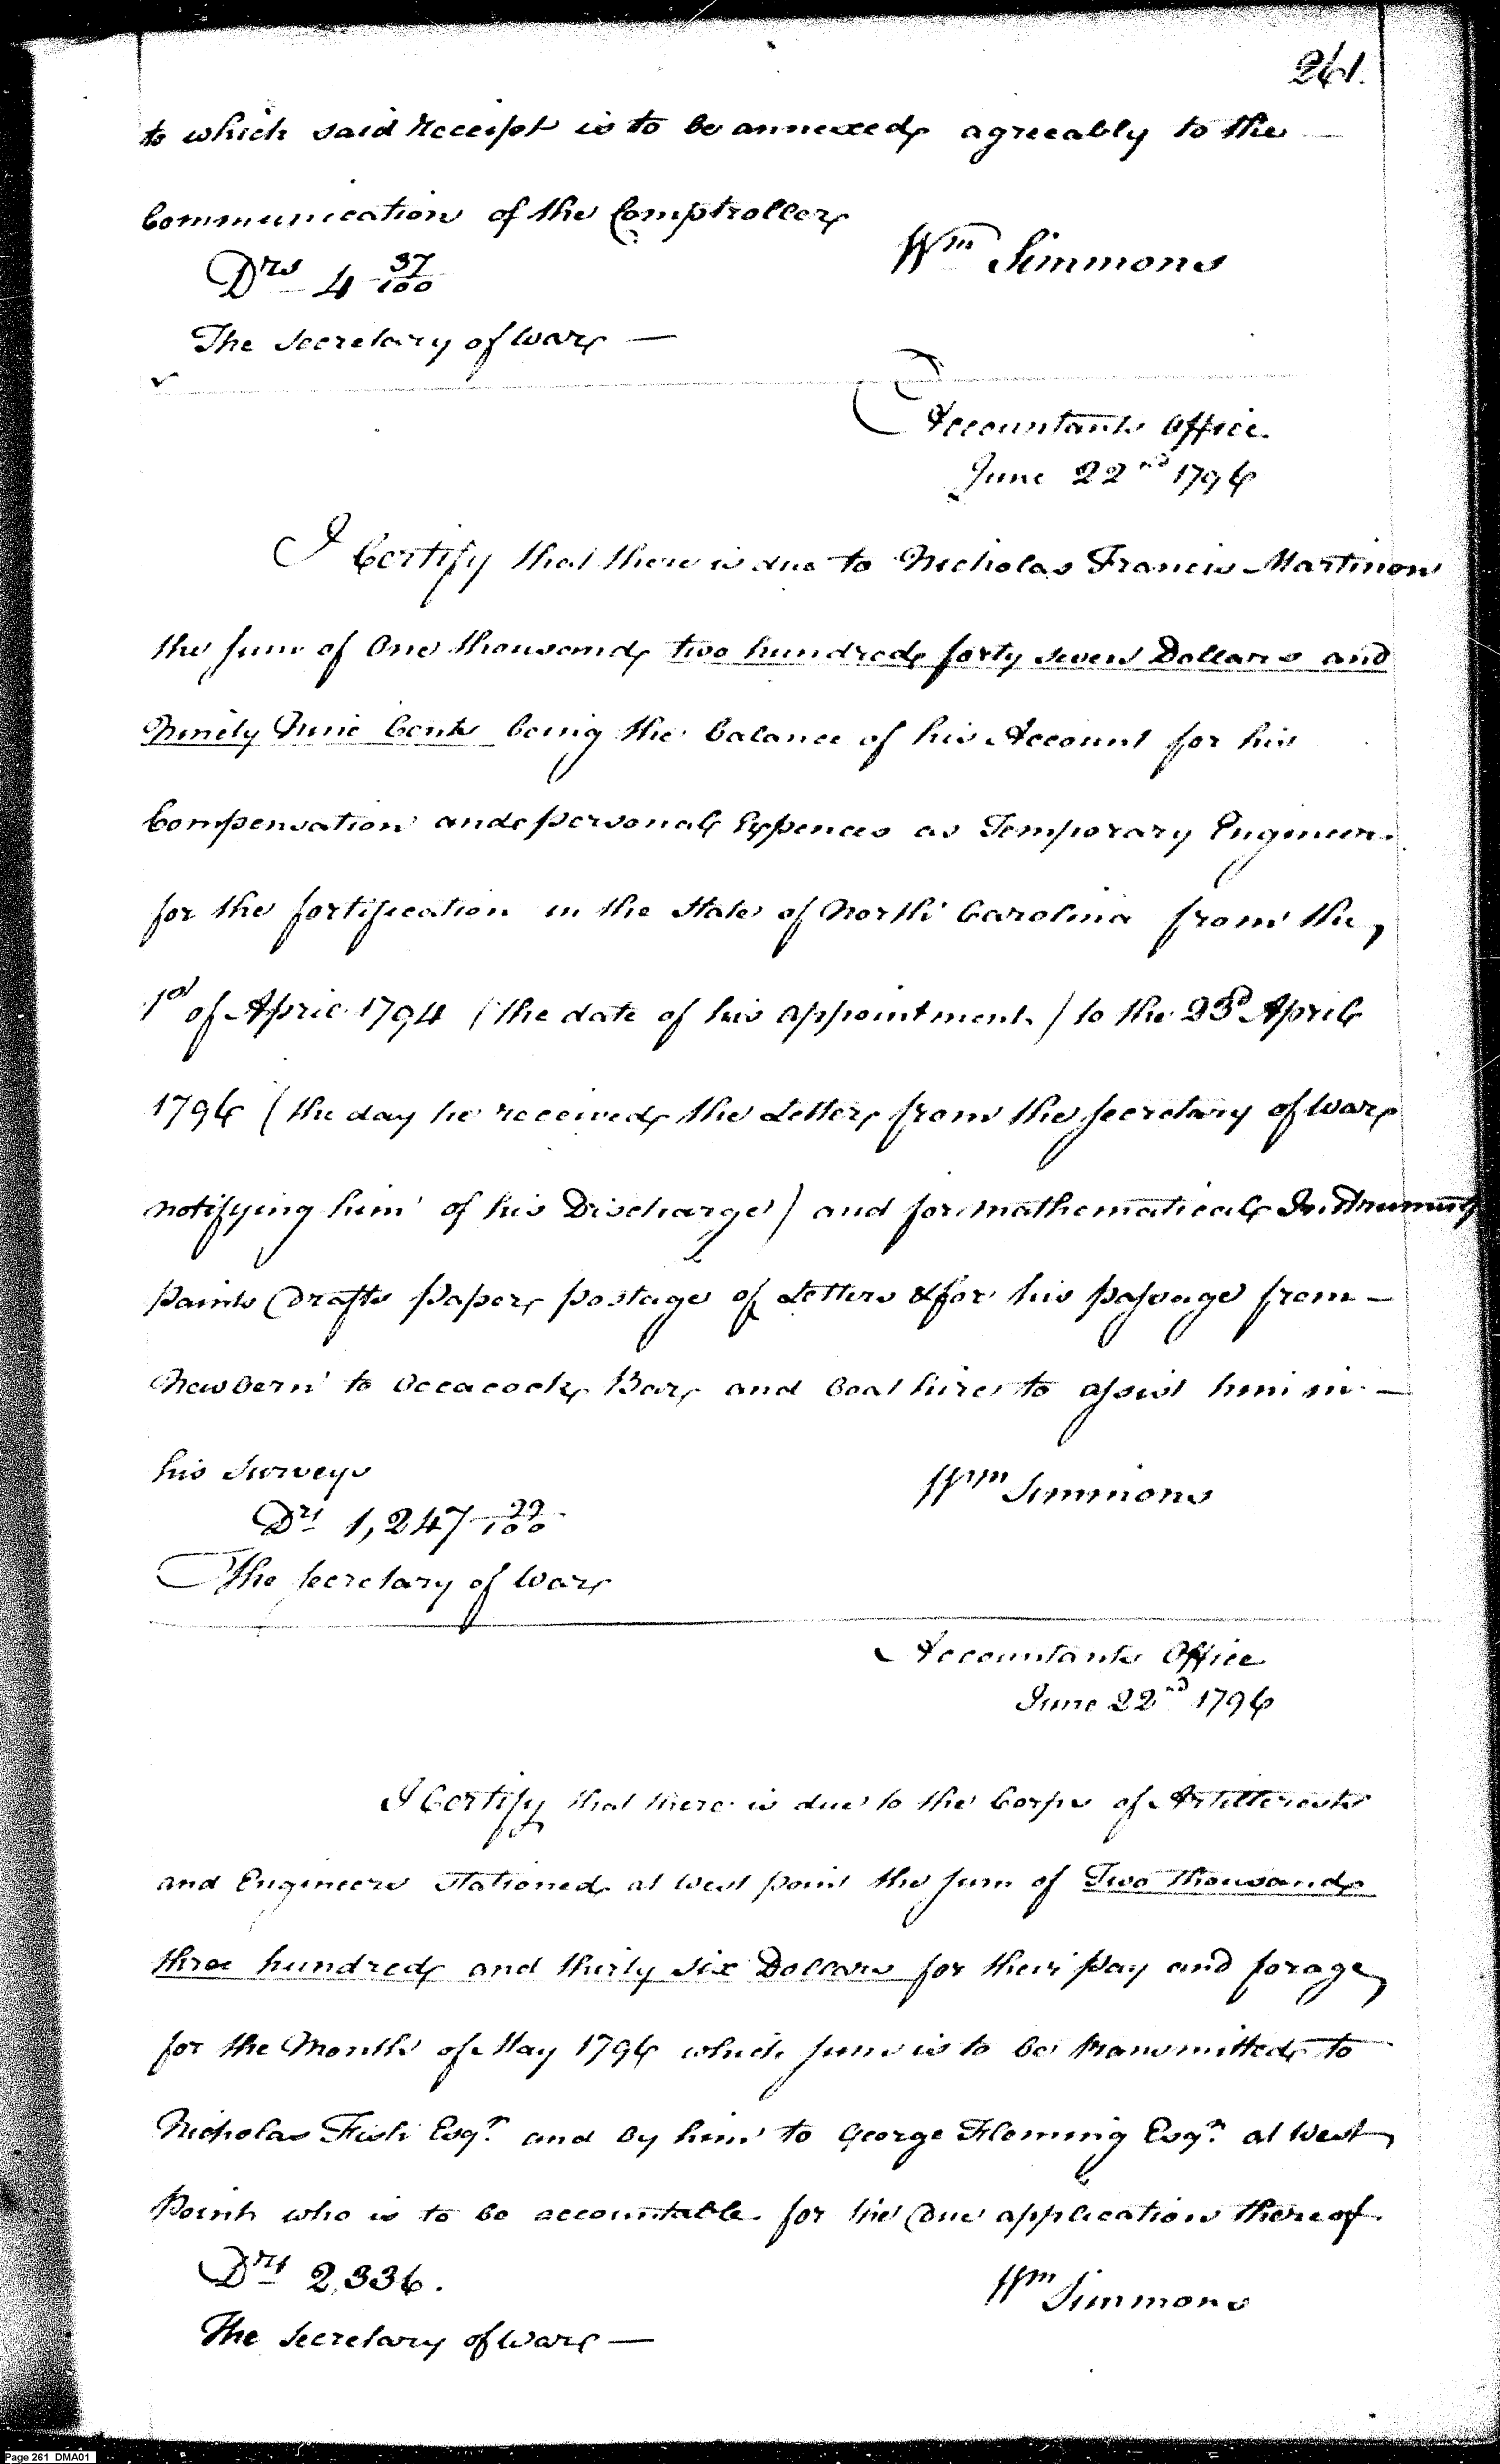 261.
to which said Receipt is to be annexed, agreeably to the —
Communication of the Comptroller,
Wm Simmons
Drs 4 37/100
The Secretary of War, —
Accountants Office.
June 22nd 1796
I Certify that there is due to Nicholas Francis Martinon
the sum of One thousand, two hundred, forty seven Dollars and
Ninety Nine Cents being the balance of his Account for his
Compensation and personal Expences as Temporary Engineer.
for the fortification in the State of North Carolina from the,
1st of April 1794 (the date of his appointment) to the 23d April
1796 (the day he received, the Letter, from the Secretary of War,
notifying him of his Discharge) and for mathematical Instruments
paints Drafts paper, postage of Letters & for his passage from —
Newbern to Occacock, Bar, and boat hire to assist him in —
his surveys
Wm Simmons
Drs 1,247 99/100
The Secretary of War,
Accountants Office
June 22nd 1796
I Certify that there is due to the Corps of Artillerests
and Engineers stationed at West point the sum of Two thousand,
three hundred, and thirty six Dollars for their pay and forage,
for the Month of May 1796 which sum is to be transmitted, to
Nicholas Fish Esqr. and by him to George Fleming Esqr. at West,
Point who is to be accountable. for the due application thereof.
Drs 2,336.
Wm Simmons
The Secretary of War, —
Page 261 DMA01